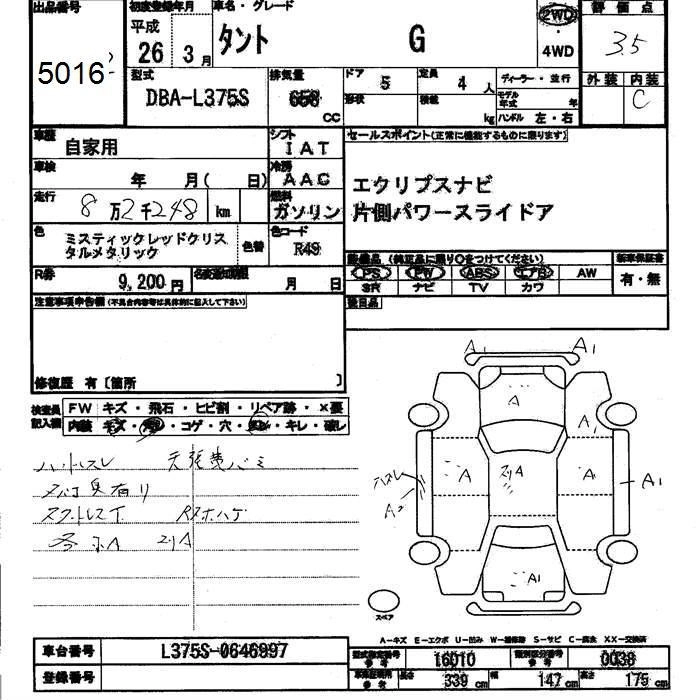 出品番号 初度登録年月 車名・グレード 評価点
5016 平成 26年 3月 タント G 2WD ・ 4WD 3.5
型式 排気量 ドア 5 定員 4人 ディーラー・並行 外装 内装
DBA-L375S 658 CC 形状 積載 kg モデル年式 年 ハンドル 左・右 C
車歴 自家用 シフト IAT セールスポイント(正常に機能するものに限ります)
車検 年 月( 日) 冷房 AAC エクリプスナビ
走行 8万2千248 km 燃料 ガソリン 片側パワースライドア
色 ミスティックレッドクリスタルメタリック 色替 色コード R49
装備品 (純正品に限り○をつけてください) 新車保証書
PS PW ABS エアB AW 有・無
SR ナビ TV カワ
R券 9,200円 名変期限 月 日
注意事項申告欄(不具合内容等は具体的に記入して下さい) 後日品
修復歴 有〔箇所 〕
検査員記入欄 FW キズ・飛石・ヒビ割・リペア跡・×要
内装 キズ・ ・コゲ・穴・ ・キレ・破レ
ハートスレ
タバコ臭有り
各ホA スリA
A1 A1
A
A スリA A A1 A1
ハスレ
A2
A1
スペア
A-キズ E-エクボ U-凹み W-補修跡 S-サビ C-腐食 XX-交換済
車台番号 L375S-0646997 型式指定番号 参考 16010 類別区分番号 参考 0038
登録番号 長さ 339cm 幅 147cm 高さ 175cm